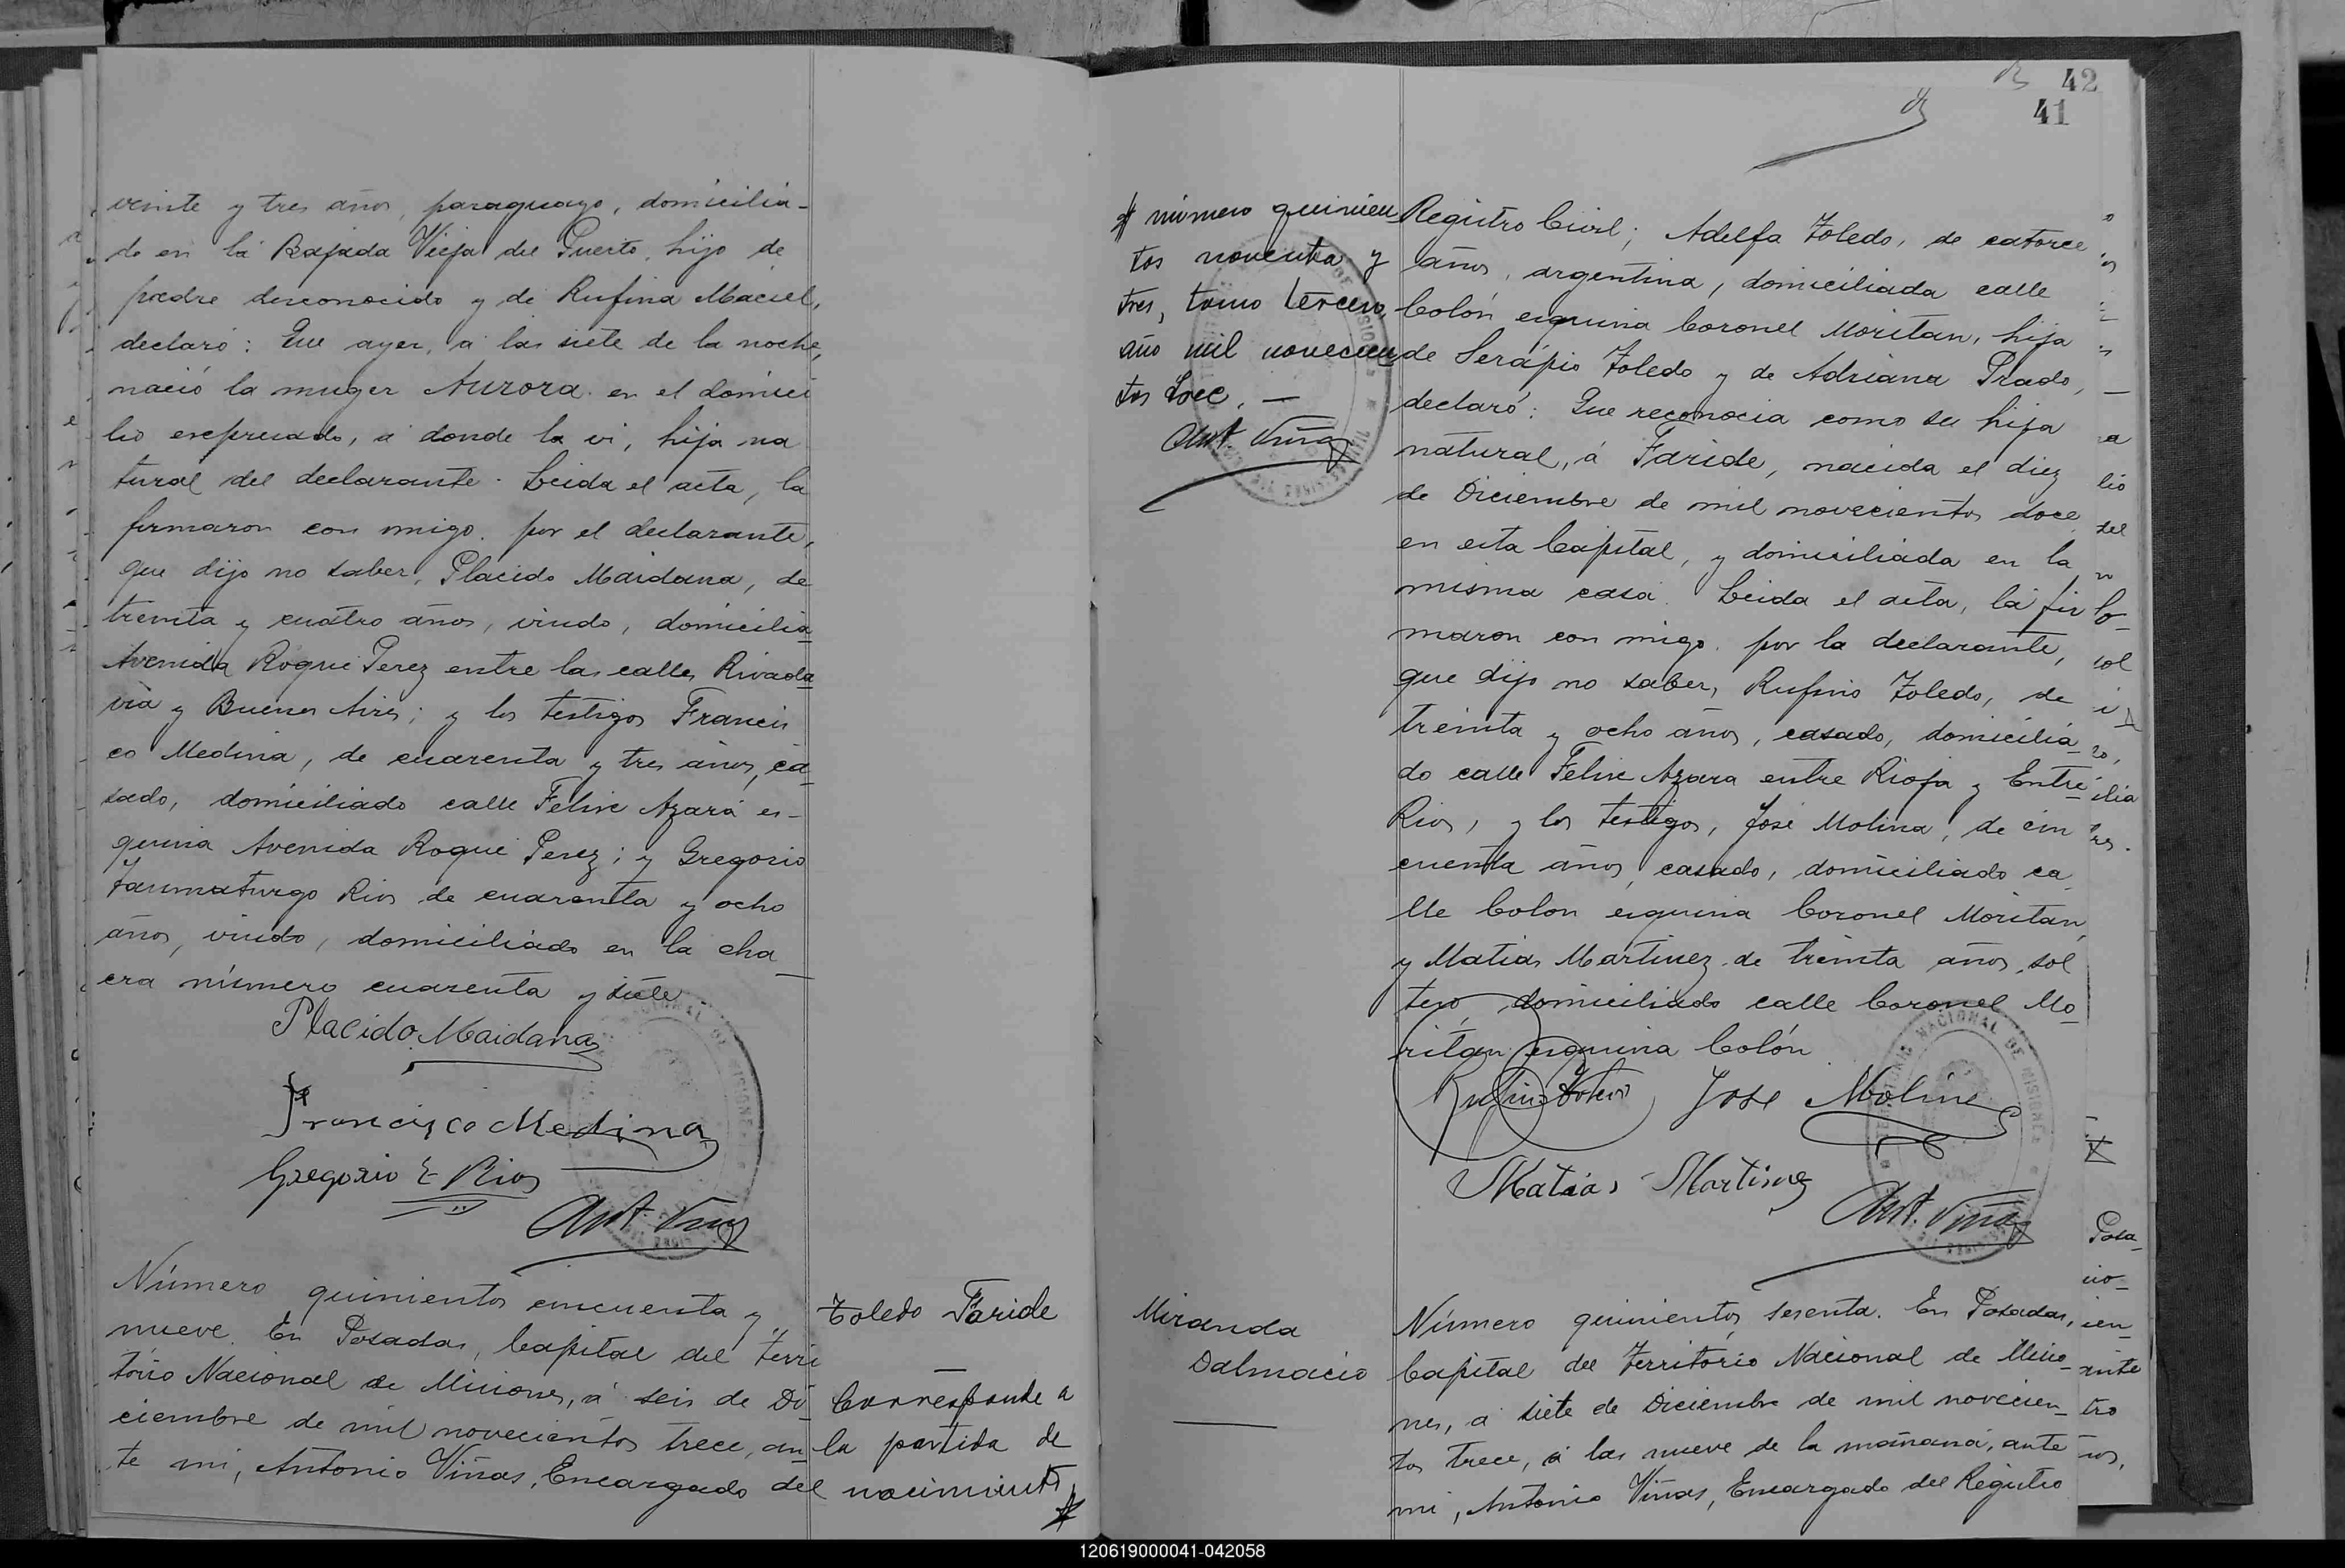 veinte y tres años, paraguayo, domicilia-
do en la Bajada Vieja del Puerto, hijo de
padre desconocido y de Rufina Maciel,
declaró: Que ayer, a las siete de la noche,
nació la muger Aurora en el domici
lio expresado, a donde la vi, hija na
tural del declarante. Leida el acta, la
firmaron con migo. por el declarante,
que dijo no saber, Placido Maidana, de
treinta y cuatro años, viudo, domicilia
Avenida Roque Perez entre las calles Rivada
via y Buenos Aires; y los testigos Francis
co Medina, de cuarenta y tres años, ca-
sado, domiciliado calle Felix Azara es-
quina Avenida Roque Perez; y Gregorio
Taumaturgo Rios de cuarenta y ocho
años, viudo, domiciliado en la cha_
cra número cuarenta y siete
Placido Maidana
Francisco Medina
Gregorio T Rios
Ant. Viñas
Número quinientos cincuenta y
nueve. En Posadas, Capital del Terri
torio Nacional de Misiones, a seis de Di
ciembre de mil novecientos trece, an_
te mi, Antonio Viñas, Encargado del
Toledo Faride
Corresponde a
la partida de
nacimiento
42
41
# número quinien
tos noventa y
tres, tomo tercero,
año mil novecien
tos doce. —
Ant. Viñas
Registro Civil; Adelfa Toledo, de catorce
años, argentina, domiciliada calle
Colón esquina Coronel Moritan, hija
de Serápio Toledo y de Adriana Prado,
declaró: Que reconocia como su hija
natural, á Faride, nacida el diez
de Diciembre de mil novecientos doce
en esta Capital, y domiciliada en la
misma casa. Leida el acta, la fir
maron con migo. por la declarante,
que dijo no saber, Rufino Toledo, de
treinta y ocho años, casado, domicilia_
do calle Felix Azara entre Rioja y Entre
Rios, y los testigos, José Molina, de cin
cuenta años, casado, domiciliado ca
lle Colon esquina Coronel Moritan,
y Matias Martinez de treinta años, sol
tero, domiciliado calle Coronel Mo_
ritan esquina Colón
Rufino Toledo Jose Molina
Matias Martinez
Ant. Viñas
TERRITORIO NACIONAL DE MISIONES
Miranda
Dalmacio
Número quinientos sesenta. En Posadas,
Capital del Territorio Nacional de Misio_
nes, a siete de Diciembre de mil novecien_
tos trece, a las nueve de la mañana, ante
mi, Antonio Viñas, Encargado del Registro
120619000041-042058